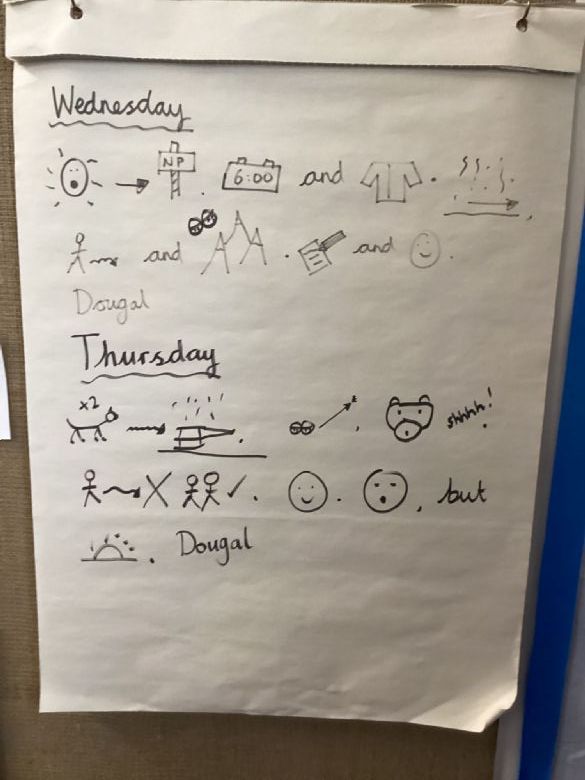 Wednesday
NP 6:00 and
and and
Dougal
Thursday
x2 shhhh!
but
Dougal